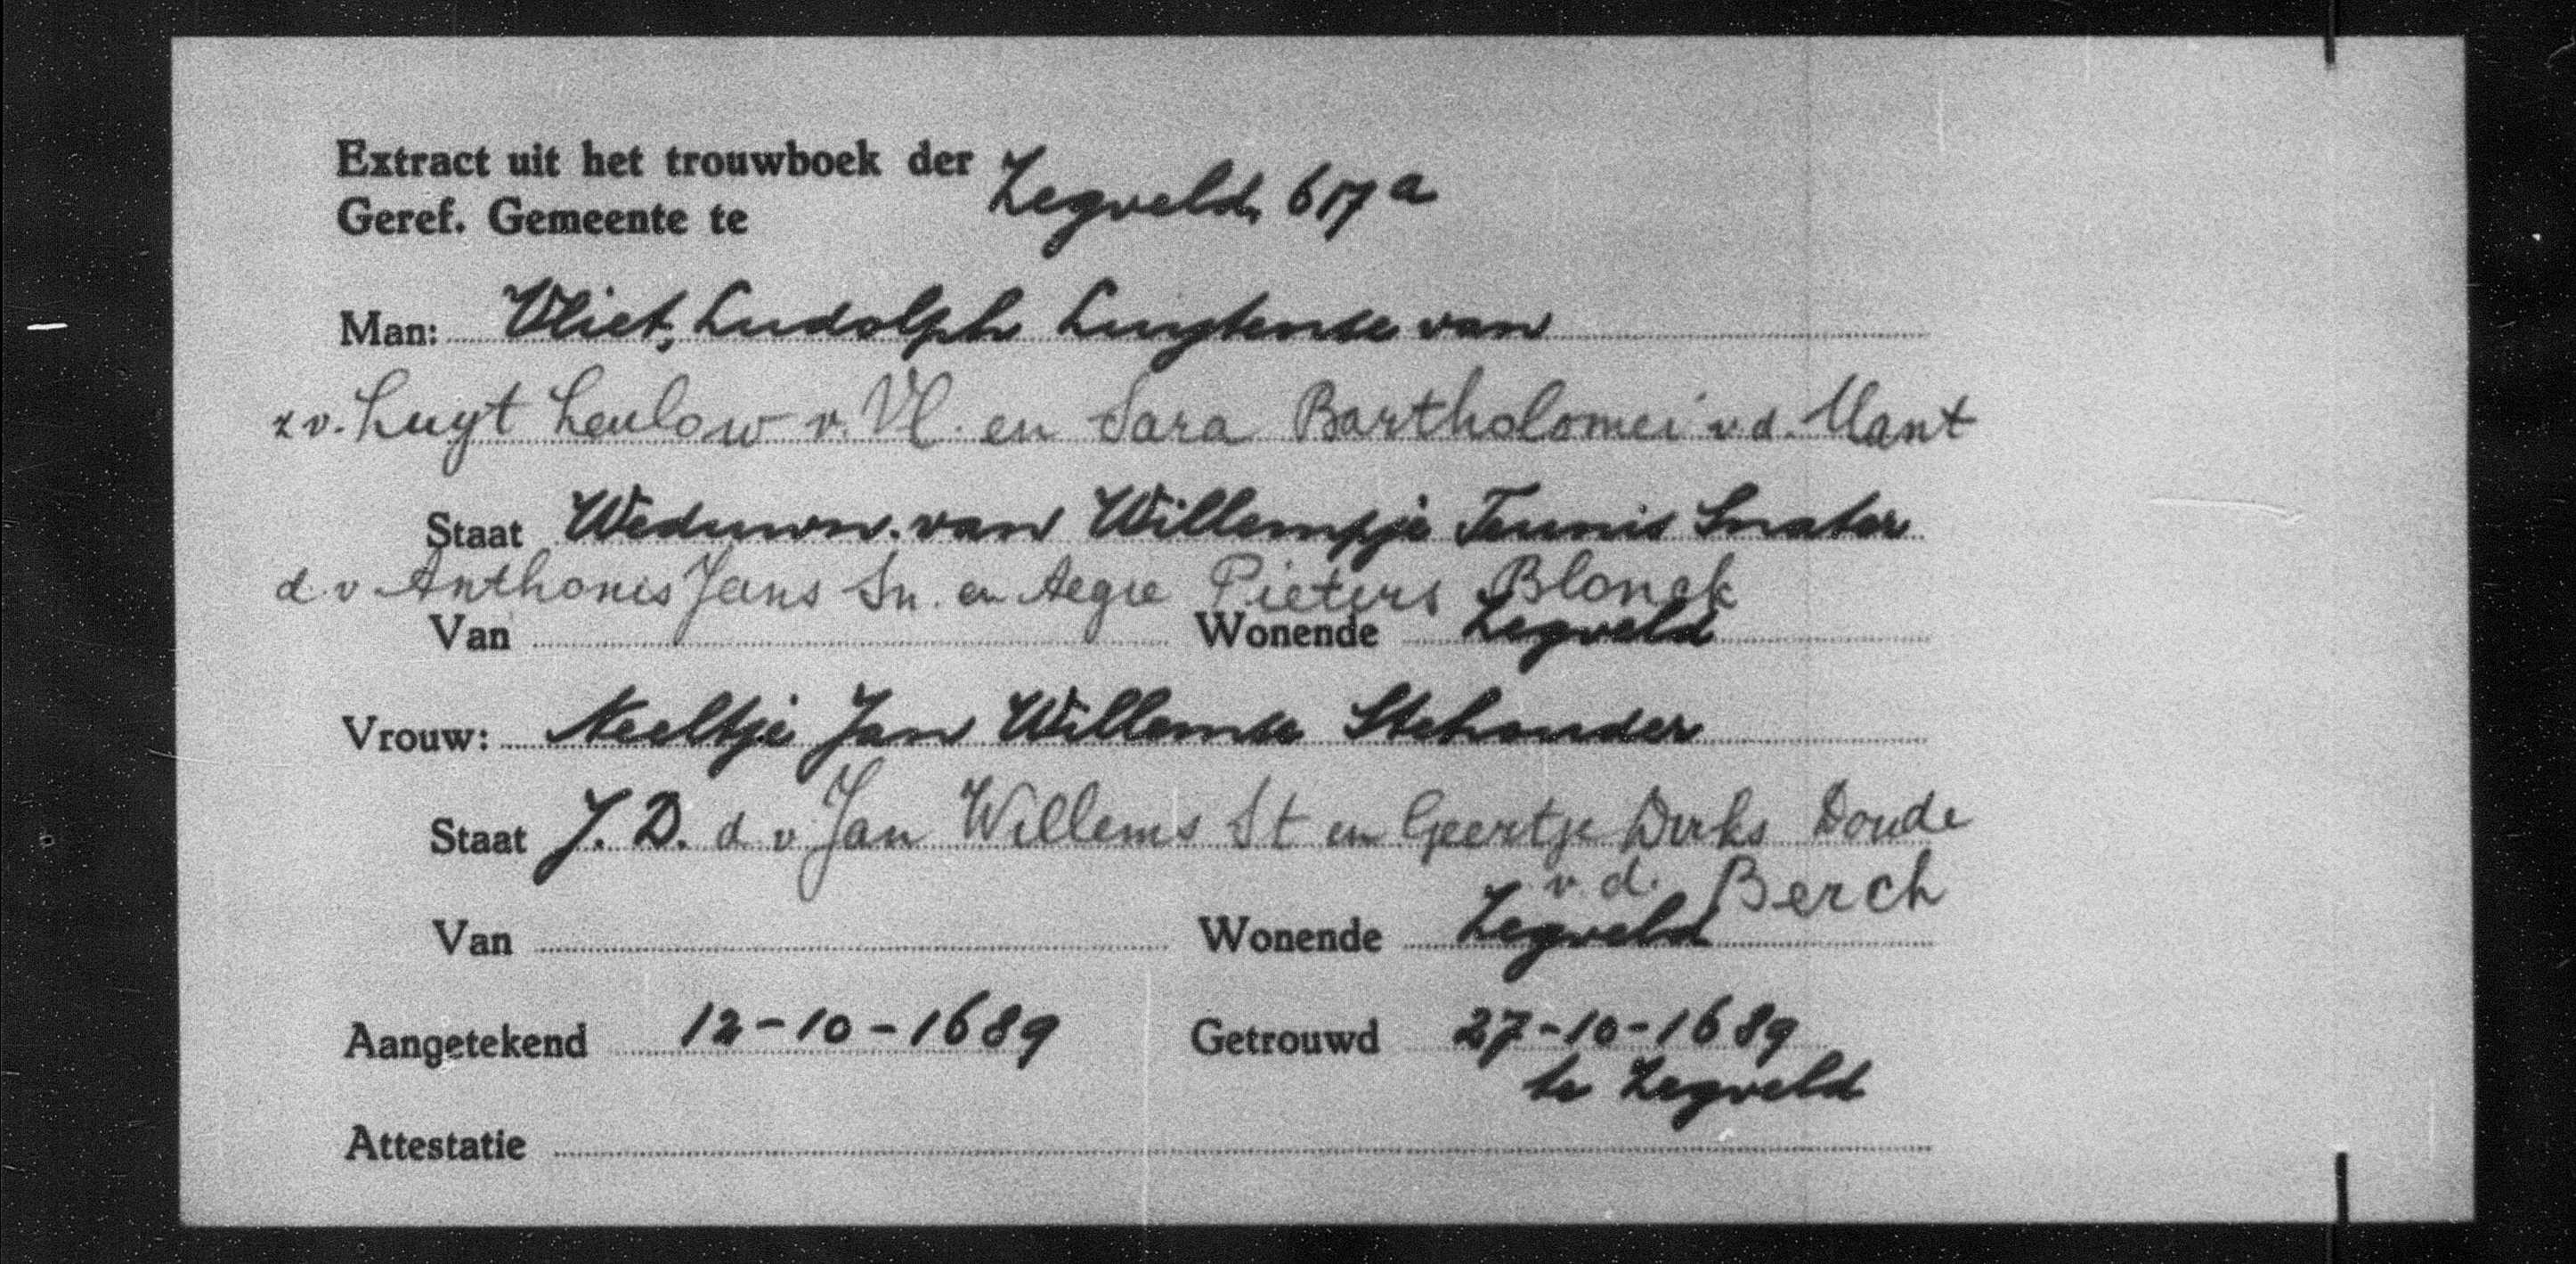 Extract uit het trouwboek der
Geref. Gemeente te Zegveld, 617a
Man: Vliet, Ludolph Luytense van
zv. Luyt Leulow v. Vl. en Sara Bartholomei v d. Mant
Staat Weduwn. van Willempje Teunis Snater
d. v Anthonis Jans Sn. en Aegie Pieters Blonck
Van Wonende Zegveld
Vrouw: Neeltje Jan Willemse Stehouder
Staat J. D. d v Jan Willems St en Geertje Dirks Doude
v. d. Berch
Van Wonende Zegveld
Aangetekend 12-10-1689 Getrouwd 27-10-1689
te Zegveld
Attestatie